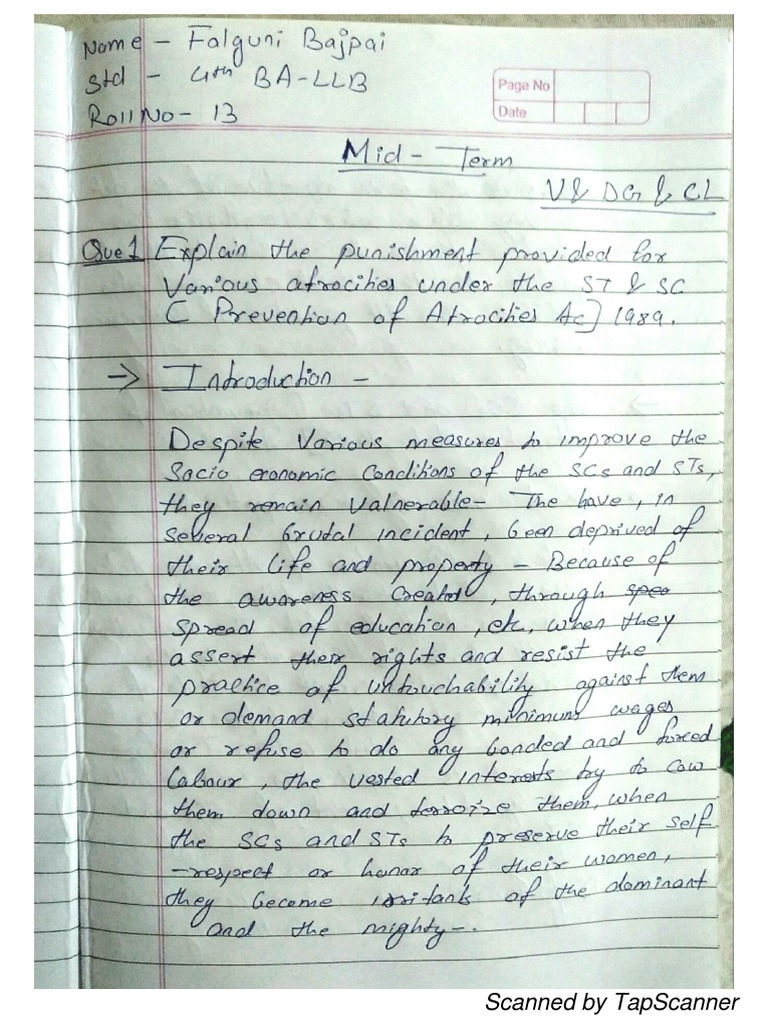 Name - Falguni Bajpai
Std - 4th BA-LLB
Roll No - 13
Page No
Date
Mid - Term
V & DG & CL
Que 1 Explain the punishment provided for
Various atrocities under the ST & SC
C Prevention of Atrocities Ac] 1989.
→ Introduction -
Despite Various measures to improve the
Socio economic Conditions of the SCs and STs,
they remain Valnerable- The have, in
several brutal incident, been deprived of
their life and property - Because of
the awareness Created, through spea
spread of education, etc, when they
assert their rights and resist the
practice of untouchability against them
or demand statutory minimum wages
or refuse to do any bonded and forced
labour, the vested interests by to cow
them down and terrorize them, when
the SCs and STs to preserve their self
-respect or honor of their women,
they become irritants of the dominant
and the mighty-.
Scanned by TapScanner